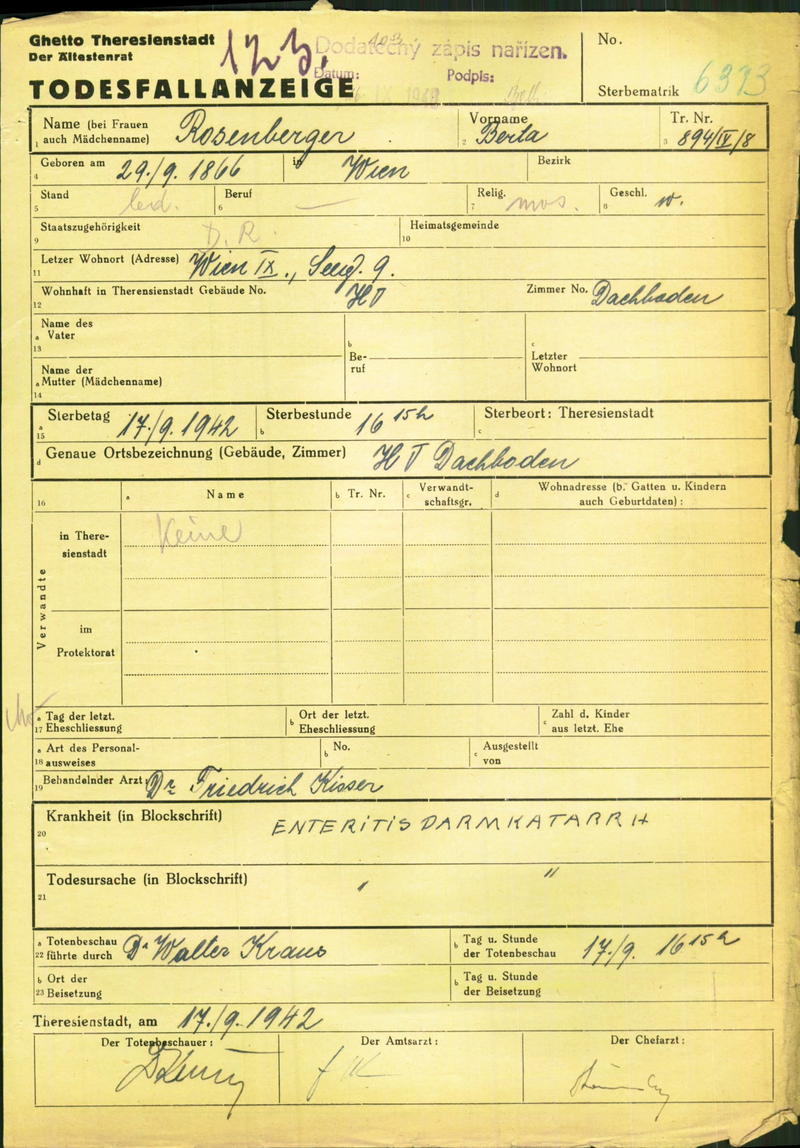 Ghetto Theresienstadt
Der Ältestenrat
TODESFALLANZEIGE
123.
Dodatečný zápis nařízen.
Datum: Podpis:
No.
Sterbematrik 6373
1 Name (bei Frauen auch Mädchenname) Rosenberger
2 Vorname Berta
3 Tr. Nr. 894/IV/8
4 Geboren am 29./9. 1866 in Wien Bezirk
5 Stand led. 6 Beruf — 7 Relig. mos. 8 Geschl. w.
9 Staatszugehörigkeit D. R. 10 Heimatsgemeinde
11 Letzer Wohnort (Adresse) Wien IX., Seeg. 9.
12 Wohnhaft in Theresienstadt Gebäude No. HV Zimmer No. Dachboden
13 a Name des Vater b Beruf c Letzter Wohnort
14 a Name der Mutter (Mädchenname)
15 a Sterbetag 17./9. 1942 b Sterbestunde 16 15h c Sterbeort: Theresienstadt
d Genaue Ortsbezeichnung (Gebäude, Zimmer) HV Dachboden
16 a Name b Tr. Nr. c Verwandtschaftsgr. d Wohnadresse (b. Gatten u. Kindern auch Geburtdaten) :
Verwandte
in Theresienstadt Keine
im Protektorat
17 a Tag der letzt. Eheschliessung b Ort der letzt. Eheschliessung c Zahl d. Kinder aus letzt. Ehe
18 a Art des Personalausweises b No. c Ausgestellt von
19 Behandelnder Arzt Dr Friedrich Kisser
20 Krankheit (in Blockschrift) ENTERITIS DARMKATARRH
21 Todesursache (in Blockschrift) " "
22 a Totenbeschau führte durch Dr Walter Kraus b Tag u. Stunde der Totenbeschau 17./9. 16 15h
23 b Ort der Beisetzung b Tag u. Stunde der Beisetzung
Theresienstadt, am 17./9. 1942
Der Totenbeschauer : Der Amtsarzt : Der Chefarzt :